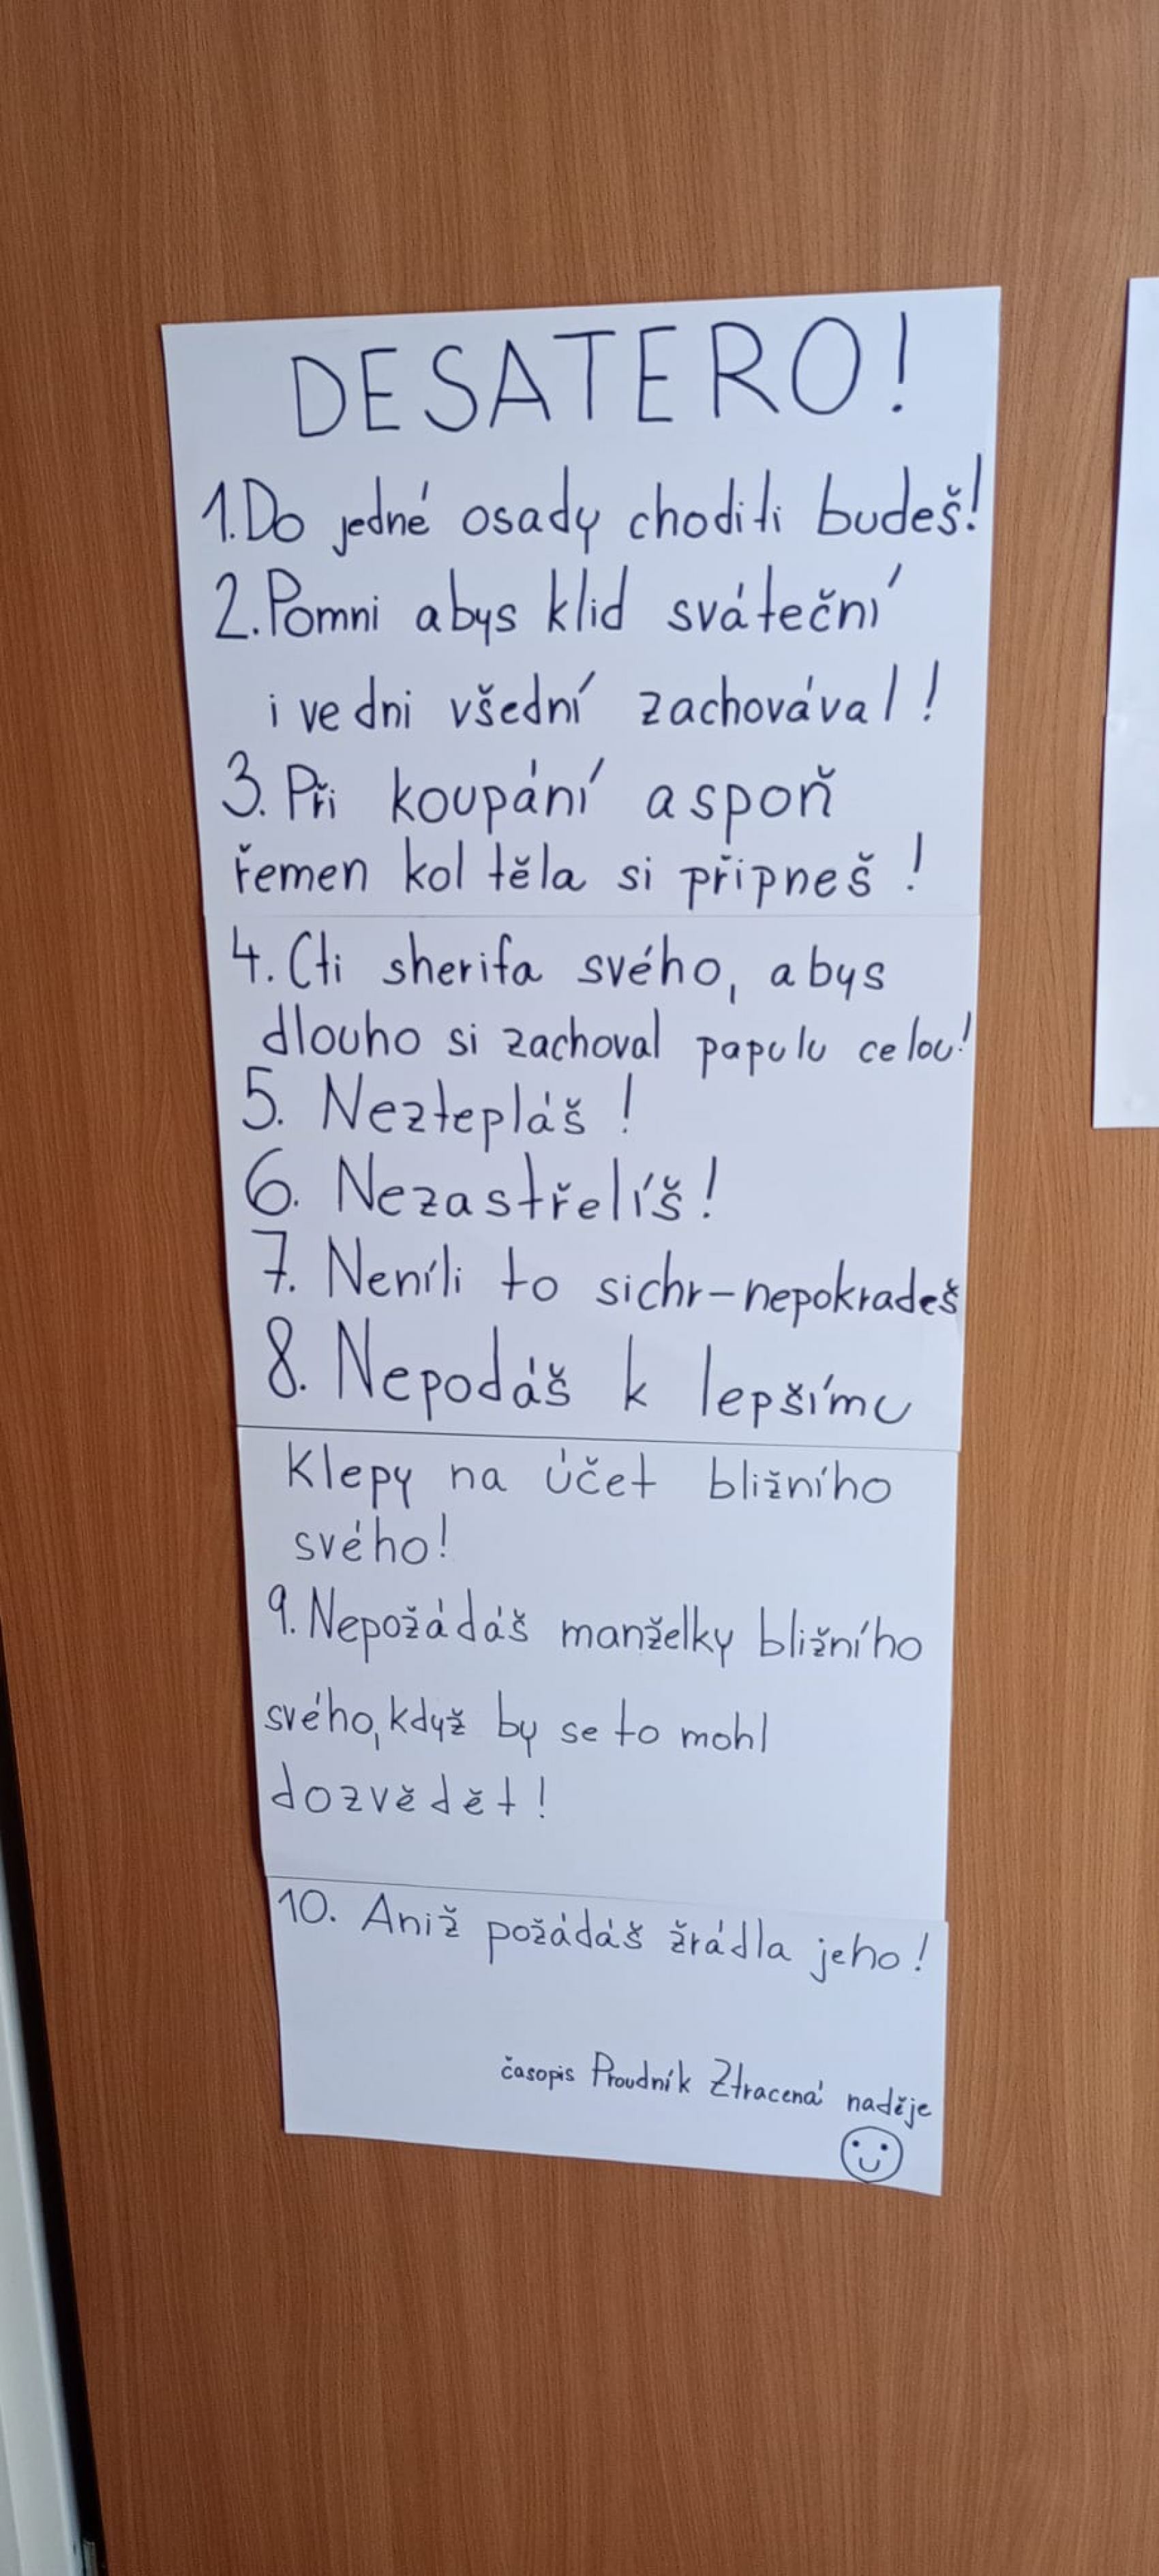 DESATERO!
1. Do jedné osady choditi budeš!
2. Pomni abys klid sváteční
i ve dni všední zachovával!
3. Při koupání aspoň
řemen kol těla si připneš!
4. Cti sherifa svého, abys
dlouho si zachoval papulu celou!
5. Neztepláš!
6. Nezastřelíš!
7. Neníli to sichr-nepokradeš
8. Nepodáš k lepšímu
klepy na účet bližního
svého!
9. Nepožádáš manželky bližního
svého, když by se to mohl
dozvědět!
10. Aniž požádáš žrádla jeho!
časopis Proudník Ztracená naděje